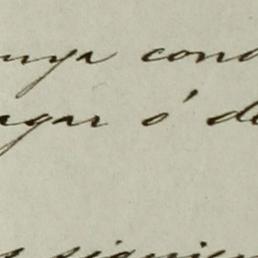 unya cond
egar ó de
s siguien